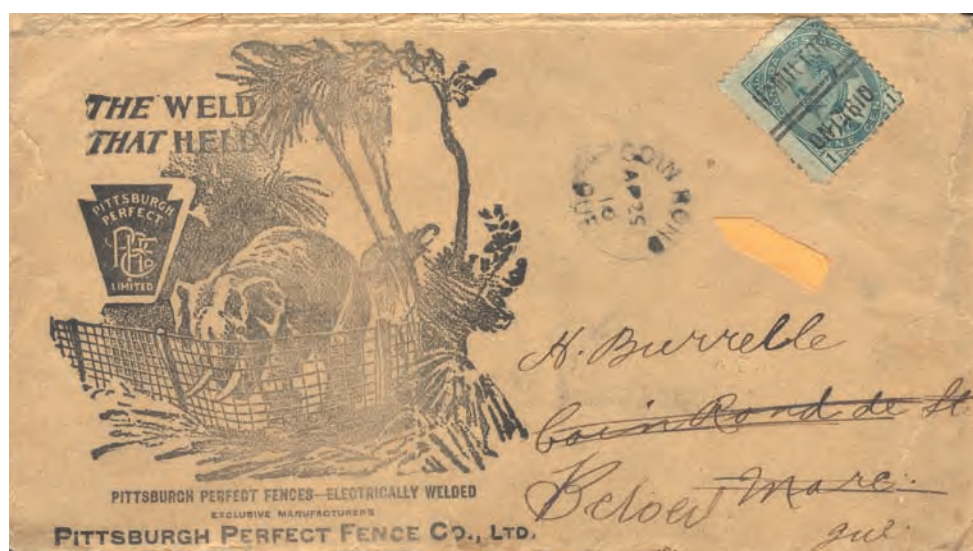 THE WELD
THAT HELD
PITTSBURGH
PERFECT
LIMITED
PITTSBURGH PERFECT FENCES—ELECTRICALLY WELDED
EXCLUSIVE MANUFACTURERS
PITTSBURGH PERFECT FENCE CO., LTD.
CANADA POSTAGE
ONE CENT
1
1
COIN ROND
AP 25
10
QUE
H. Burrelle
Coin Rond de St
Marc.
Beloeil
que.